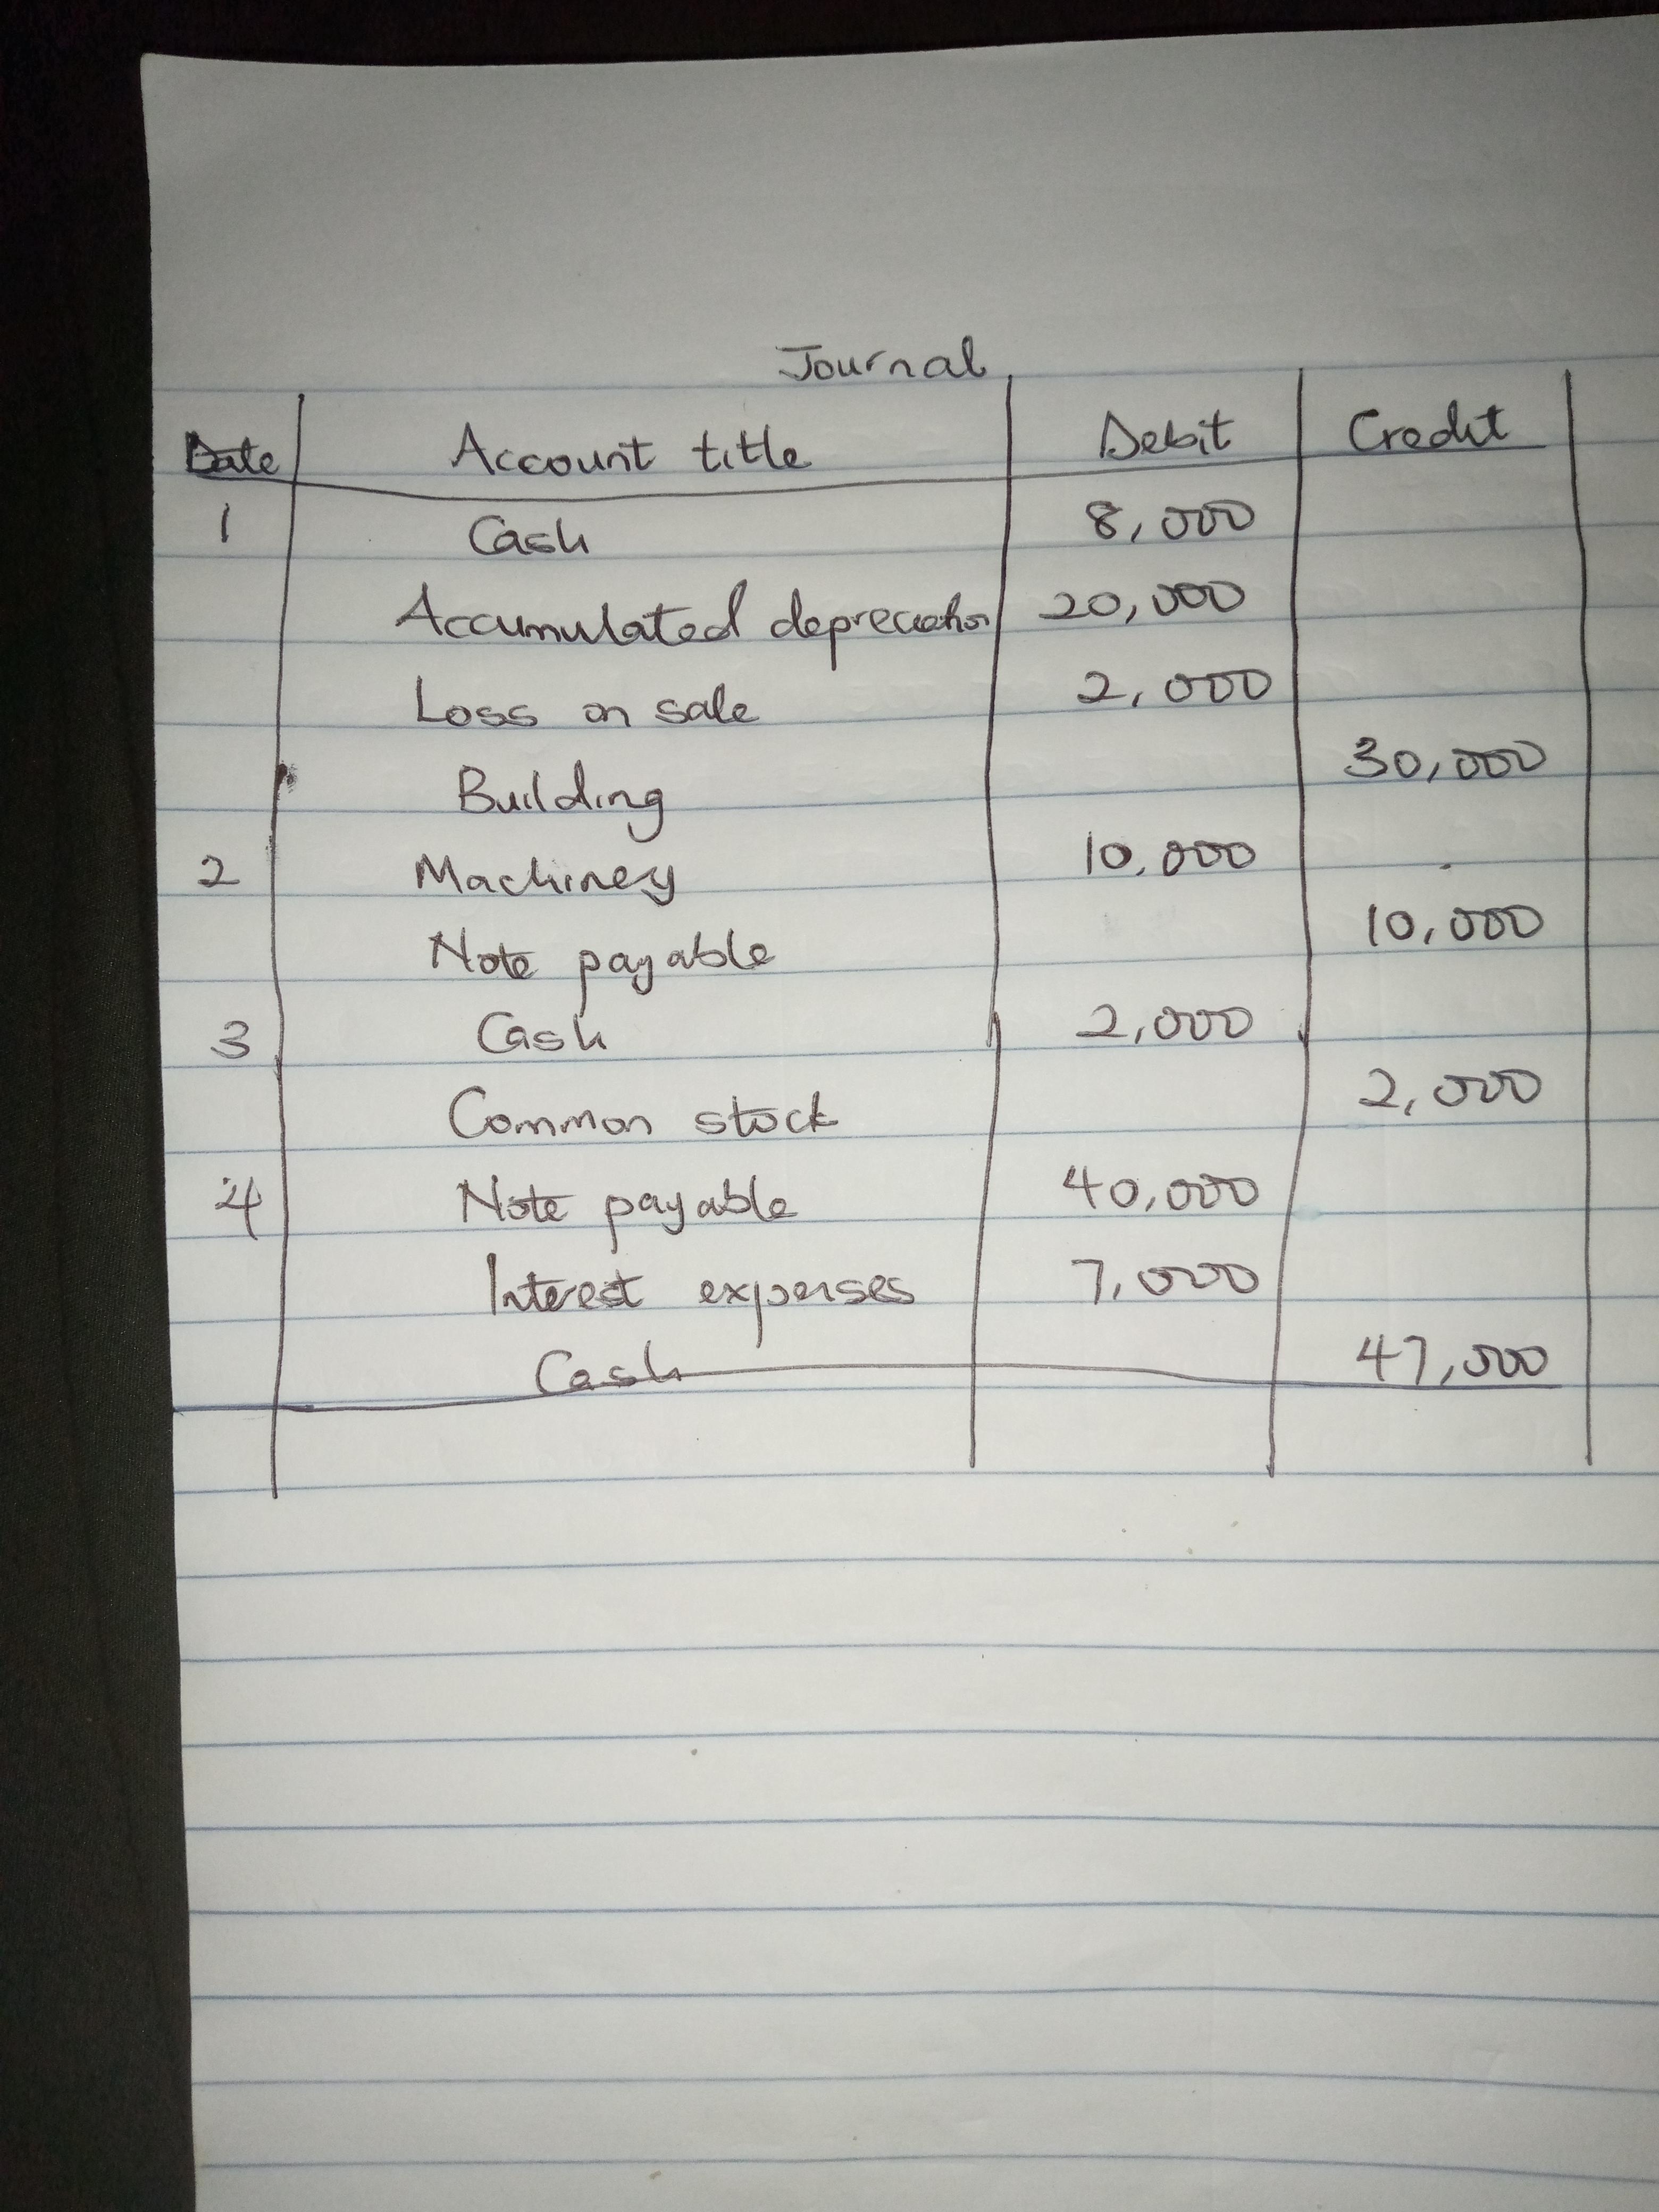 Journal
Date Account title Debit Credit
1 Cash 8,000
Accumulated depreciation 20,000
Loss on sale 2,000
Building 30,000
2 Machinery 10,000
Note payable 10,000
3 Cash 2,000
Common stock 2,000
4 Note payable 40,000
Interest expenses 7,000
Cash 47,000